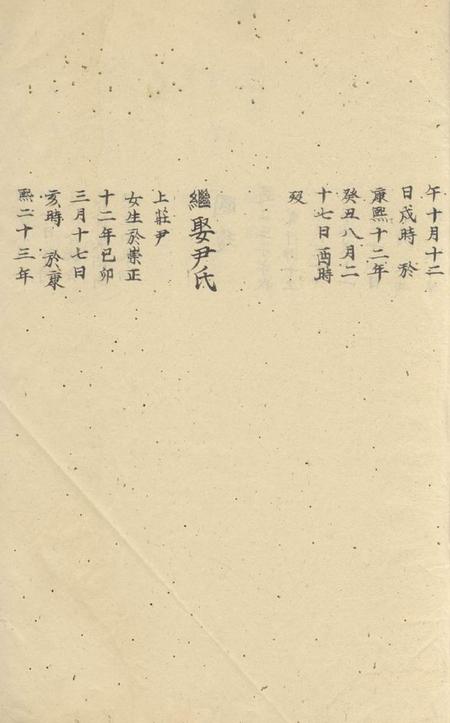 午十月十二
日戍時 於
康熙十二年
癸丑八月二
十七日酉時
歿
繼娶尹氏
上莊尹
女生於崇正
十二年己卯
三月十七日
亥時 於康
熙二十三年